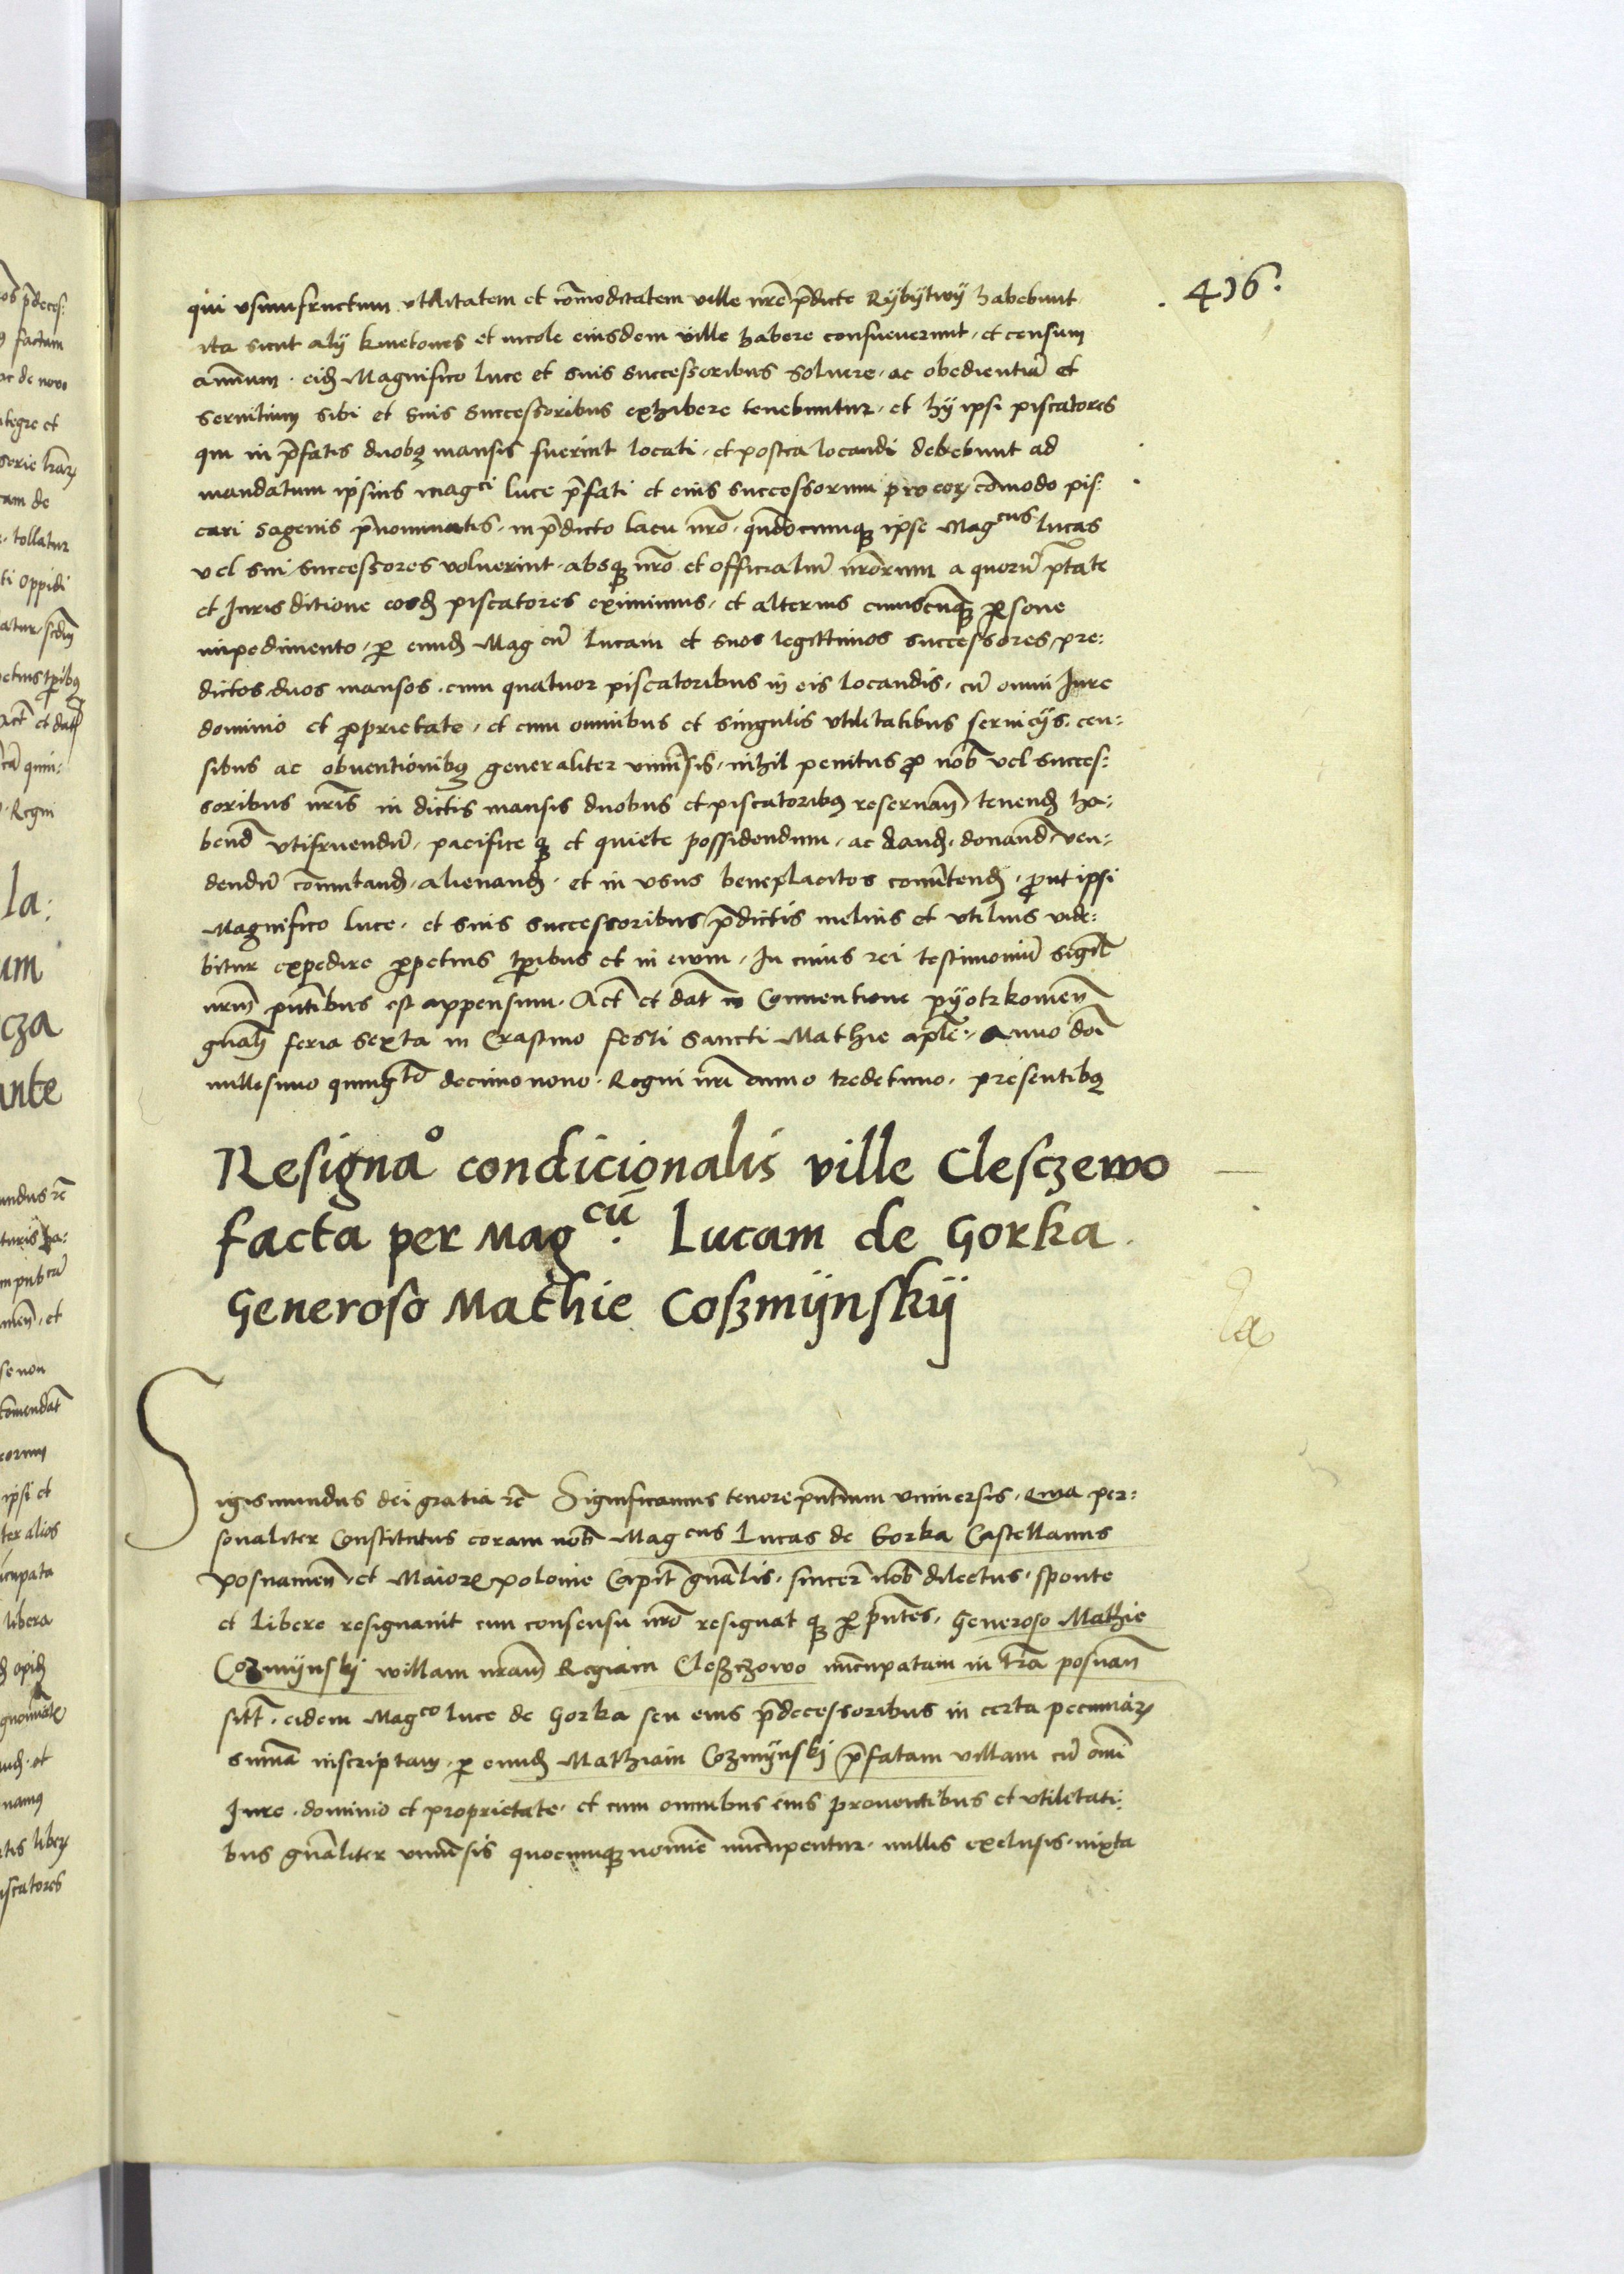 . 436.
qui vsumfructum vtilitatem et com̄oditatem ville nr̄e p̄dicte Rybÿtwÿ habebunt
ita sicut alÿ kmetones et incole eiusdem ville habere consueuerunt, et censum
annuum . eidꝫ Magnifico luce et suis successoribus soluere, ac obedientiā et
seruitium sibi et suis successoribus exhibere tenebuntur, et hÿ ipsi piscatores
qui in p̄fatis duobꝫ mansis fuerint locati, et postea locandi debebunt ad
mandatum ipsius magci luce p̄fati et eius successorum pro eoꝝ com̄odo pis:
cari sagenis p̄nominatis, in p̄dicto lacu nr̄o, qn̄documqꝫ ipse Magcus lucas
vel sui successores voluerint, absqꝫ nr̄o et officialiū nr̄orum a quorū p̄tate
et Jurisditione eosdꝫ piscatores eximimus, et alterius cuiuscūqꝫ ꝑsone
impedimento, ꝑ eundꝫ Magcū Lucam et suos legittimos successores, pre:
dictos duos mansos, cum quatuor piscatoribus in eis locandis, cū omni Jure
dominio et ꝓprietate, et cum omnibus et singulis vtilitatibus seruicÿs, cen:
sibus ac obuentionibꝫ generaliter vniūsis, nihil penitus ꝓ nob̄ vel succes:
soribus nr̄is in dictis mansis duobus et piscatoribꝫ reseruan̄, tenendꝫ ha:
bend̄ vtifruendū, pacifice qꝫ et quiete possidendum, ac dandꝫ, donand̄, ven:
dendū com̄utandꝫ, alienandꝫ, et in vsus beneplacitos conūtendꝫ, ꝓut ipsi
Magnifico luce, et suis successoribus p̄dictis melius et vtilius vide:
bitur expedire ꝑpetuis tꝑibus et in euum, In cuius rei testimoniū sigil̄
nrūm pn̄tibus est appensum. Act̄ et dat̄ in Conuentione pÿotrkouien̄
gn̄ali feria sexta in Crastino festi sancti Mathie aplī, Anno doī
millesimo quingto decimonono. Regni nr̄i anno tredecimo. presentibꝫ
Resignao condicionalis ville Clesczewo
facta per Magcū. Lucam de Gorka.
Generoso Mathie Coſzmÿnskÿ
Sigismundus dei gratia rc̄ Significamus tenore pn̄tium vniuersis, quia per:
sonaliter Constitutus coram nob̄ Magcus Lucas de Gorka Castellanus
posnanien̄, et Maioris polonie Capit̄ gn̄alis, sincer̄ nob̄ dilectus, sponte
et libere resignauit cum consensu nr̄o resignat qꝫ ꝑ pn̄tes, Generoso Mathie
Cozmÿnskj villam nr̄am Regiam Cleszczewo nuncupatam in tr̄a posnan̄
sitt̄, eidem Magco luce de Gorka seu eius p̄decessoribus in certa pecuniaꝝ
sum̄a inscriptam, ꝑ eundꝫ Mathiam Cozmÿnskj p̄fatam villam cū omī
Jure, dominio et proprietate, et cum omnibus eius prouentibus et vtilitati:
bus gn̄aliter vniūsis quocumqꝫ nomīe nuncupentur, nullis exclusis, iuxta